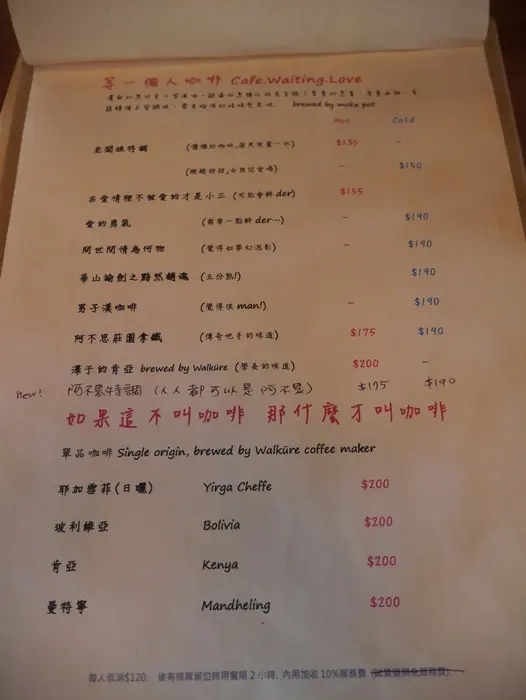 等一個人咖啡 Cafe.Waiting.Love
brewed by moka pot
Hot Cold
老闆娘特調 $135 –
– $150
在愛情裡不被愛的才是小三 (可能會醉der) $155
愛的勇氣 (需要一點醉der…) – $190
問世間情為何物 (覺得如夢幻泡影) – $190
華山論劍之黯然銷魂 (五份熱!) $190
男子漢咖啡 (覺得很man!) – $190
阿不思莊園拿鐵 (傳奇吧手的味道) $175 $190
澤于的肯亞 brewed by Walküre (學長的味道) $200 –
New! 阿不思特調 (人人都可以是阿不思) $175 $190
如果這不叫咖啡 那什麼才叫咖啡
單品咖啡 Single origin, brewed by Walküre coffee maker
耶加雪菲(日曬) Yirga Cheffe $200
玻利維亞 Bolivia $200
肯亞 Kenya $200
曼特寧 Mandheling $200
每人低消$120. 後有排隊候位時用餐限2小時. 內用加收10%服務費